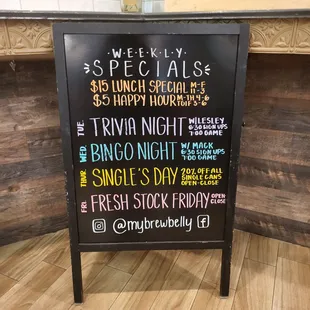 WEEKLY
SPECIALS
$15 LUNCH SPECIAL M-F 11-3
$5 HAPPY HOUR M-TH 4-6 3-6
TUE. TRIVIA NIGHT W/LESLEY 6:30 SIGN UPS 7:00 GAME
WED. BINGO NIGHT W/ MACK 6:30 SIGN UPS 7:00 GAME
THUR. SINGLE'S DAY 20% OFF ALL SINGLE CANS OPEN-CLOSE
FRI. FRESH STOCK FRIDAY OPEN CLOSE
@mybrewbelly